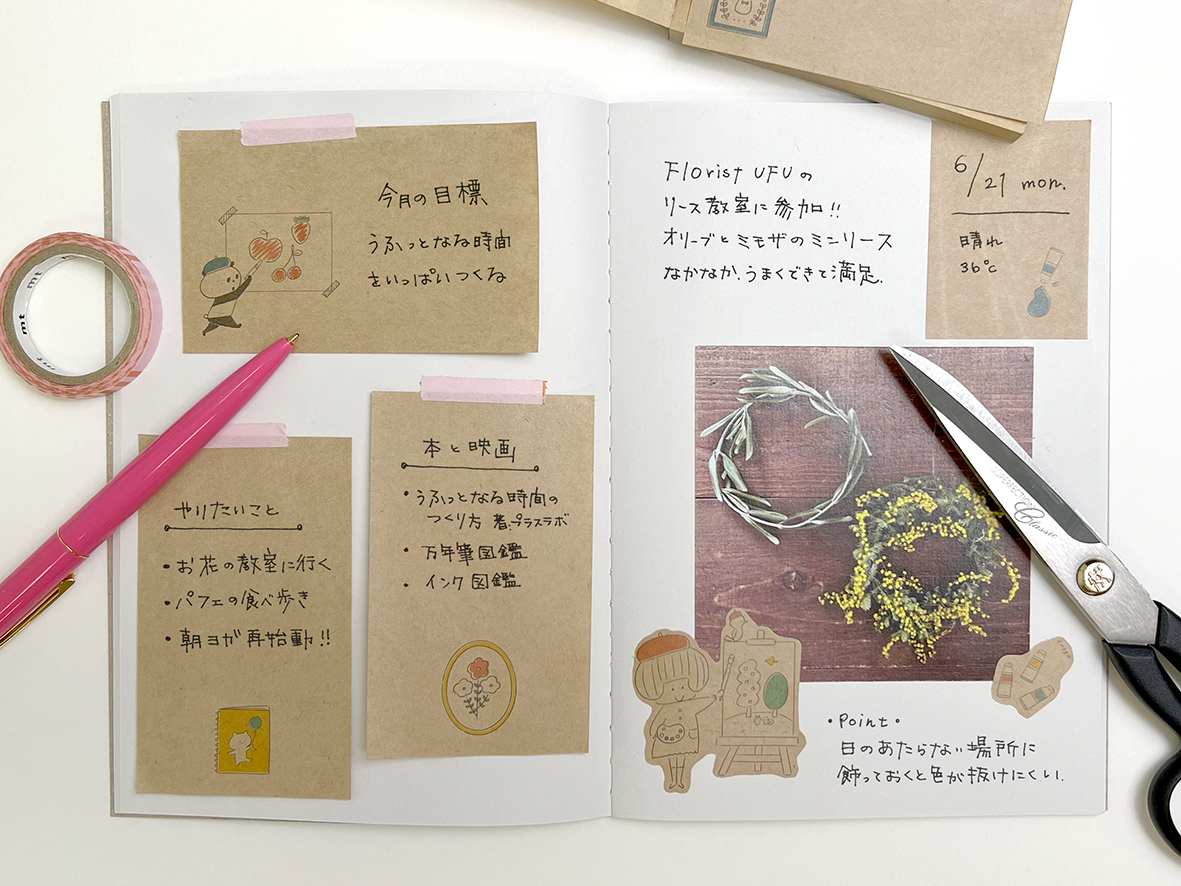 今月の目標
うふっとなる時間
をいっぱいつくる
mt
mt
やりたいこと
・お花の教室に行く
・パフェの食べ歩き
・朝ヨガ再始動!!
本と映画
・うふっとなる時間の
つくり方 著.プラスラボ
・万年筆図鑑
・インク図鑑
Florist UFUの
リース教室に参加!!
オリーブとミモザのミニリース
なかなか、うまくできて満足.
6/21 mon.
晴れ
36℃
PERFECTION
Classic
・Point・
日のあたらない場所に
飾っておくと色が抜けにくい.